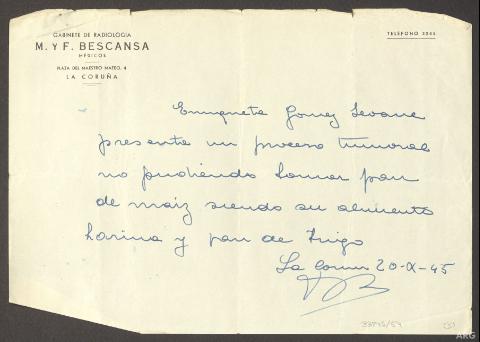 GABINETE DE RADIOLOGÍA
M. Y F. BESCANSA
MÉDICOS
PLAZA DEL MAESTRO MATEO, 4
LA CORUÑA
TELÉFONO 3045
Enriqueta Gomez Seoane
presenta un proceso tumoral
no pudiendo tomar pan
de maiz siendo su alimento
harina y pan de trigo
La Coruña 20-X-45
(5)
ARG